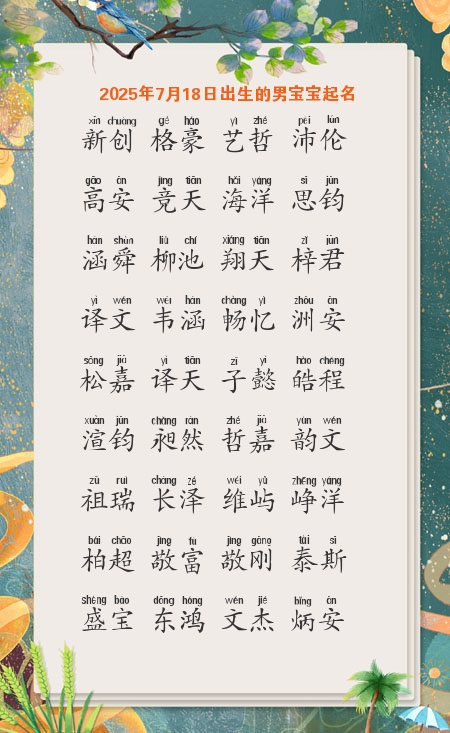 2025年7月18日出生的男宝宝起名
xīn chuàng gé háo yì zhé pèi lún
新创 格豪 艺哲 沛伦
gāo ān jìng tiān hǎi yáng sī jūn
高安 竞天 海洋 思钧
hán shùn liǔ chí xiáng tiān zǐ jūn
涵舜 柳池 翔天 梓君
yì wén wéi hán chàng yì zhōu ān
译文 韦涵 畅忆 洲安
sōng jiā yì tiān zǐ yì hào chéng
松嘉 译天 子懿 皓程
xuàn jūn chǎng rán zhé jiā yùn wén
渲钧 昶然 哲嘉 韵文
zǔ ruì cháng zé wéi yǔ zhēng yáng
祖瑞 长泽 维屿 峥洋
bǎi chāo jìng fù jìng gāng tài sī
柏超 敬富 敬刚 泰斯
shèng bǎo dōng hóng wén jié bǐng ān
盛宝 东鸿 文杰 炳安